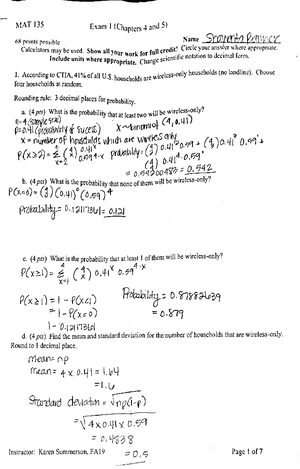 MAT 135
Exam 1 (Chapters 4 and 5)
68 points possible
Name
Calculators may be used. Show all your work for full credit! Circle your answer where appropriate.
Include units where appropriate. Change scientific notation to decimal form.
1. According to CTIA, 41% of all U.S. households are wireless-only households (no landline). Choose
four households at random.
Rounding rule: 3 decimal places for probability.
a. (4 pts) What is the probability that at least two will be wireless-only?
n = 4 (sample size)
p = 0.41 (probability of success) X ~ binomial (4, 0.41)
x = number of households which are wireless only
P(x ≥ 2) = Σ (4 x) 0.41^x 0.59^4-x probability = (4 2) 0.41² 0.59² + (4 3) 0.41³ 0.59¹ +
(4 4) 0.41⁴ 0.59⁰
= 0.542
b. (4 pts) What is the probability that none of them will be wireless-only?
P(x=0) = (4 0) (0.41)⁰ (0.59)⁴
Probability = 0.12117361 = 0.121
c. (4 pts) What is the probability that at least 1 of them will be wireless-only?
P(x ≥ 1) = Σ (4 x) 0.41^x 0.59^4-x
x=1
P(x ≥ 1) = 1 - P(x<1)
= 1 - P(x=0)
1 - 0.12117361
Probability = 0.87882639
= 0.879
d. (4 pts) Find the mean and standard deviation for the number of households that are wireless-only.
Round to 1 decimal place.
mean = np
mean = 4 x 0.41 = 1.64
= 1.6
Standard deviation = √np(1-p)
= √4x0.41x0.59
= 0.4838
= 0.5
Instructor: Karen Summerson, FA19
Page 1 of 7